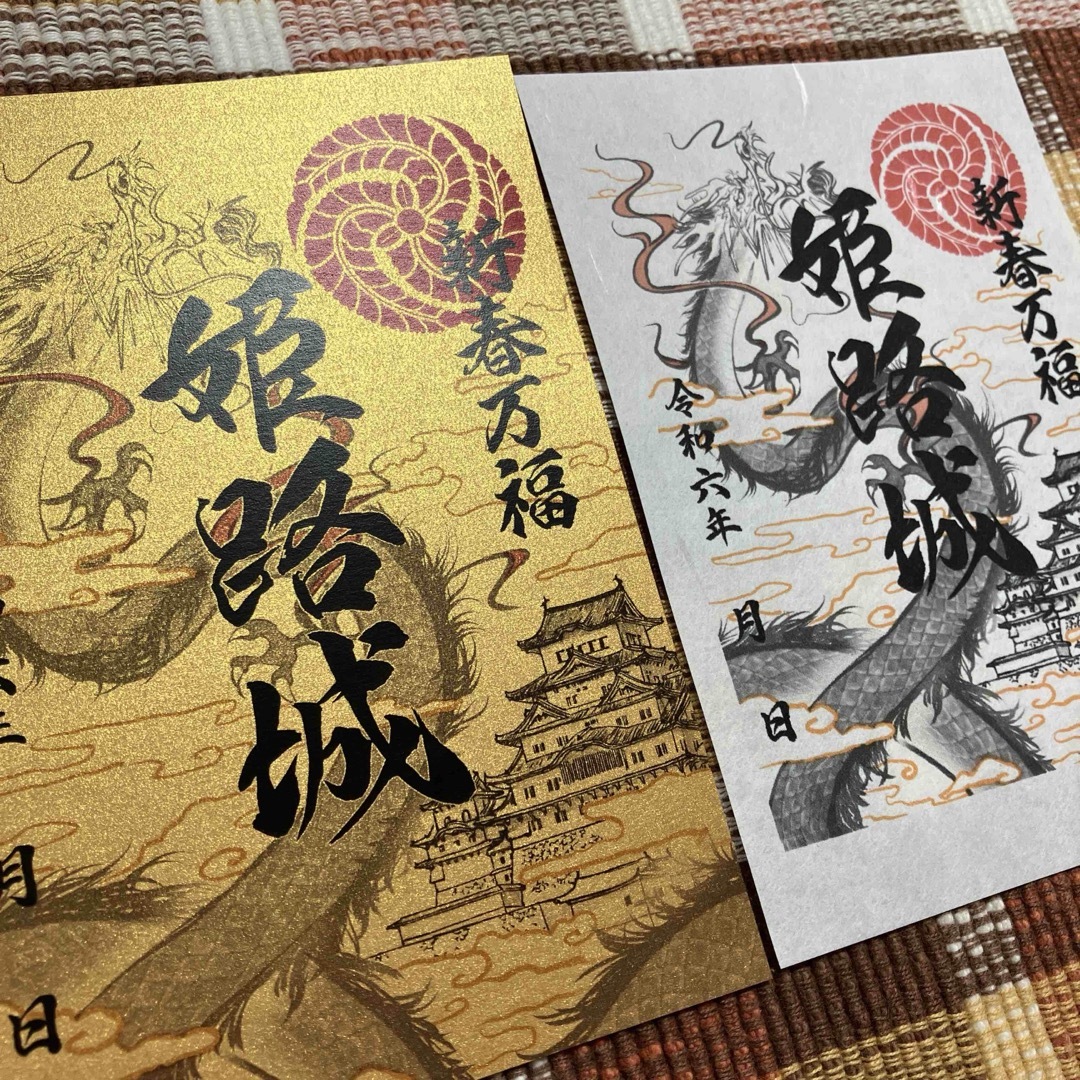 新春万福
姫路城
月
日
新春万福
姫路城
令和六年
月
日